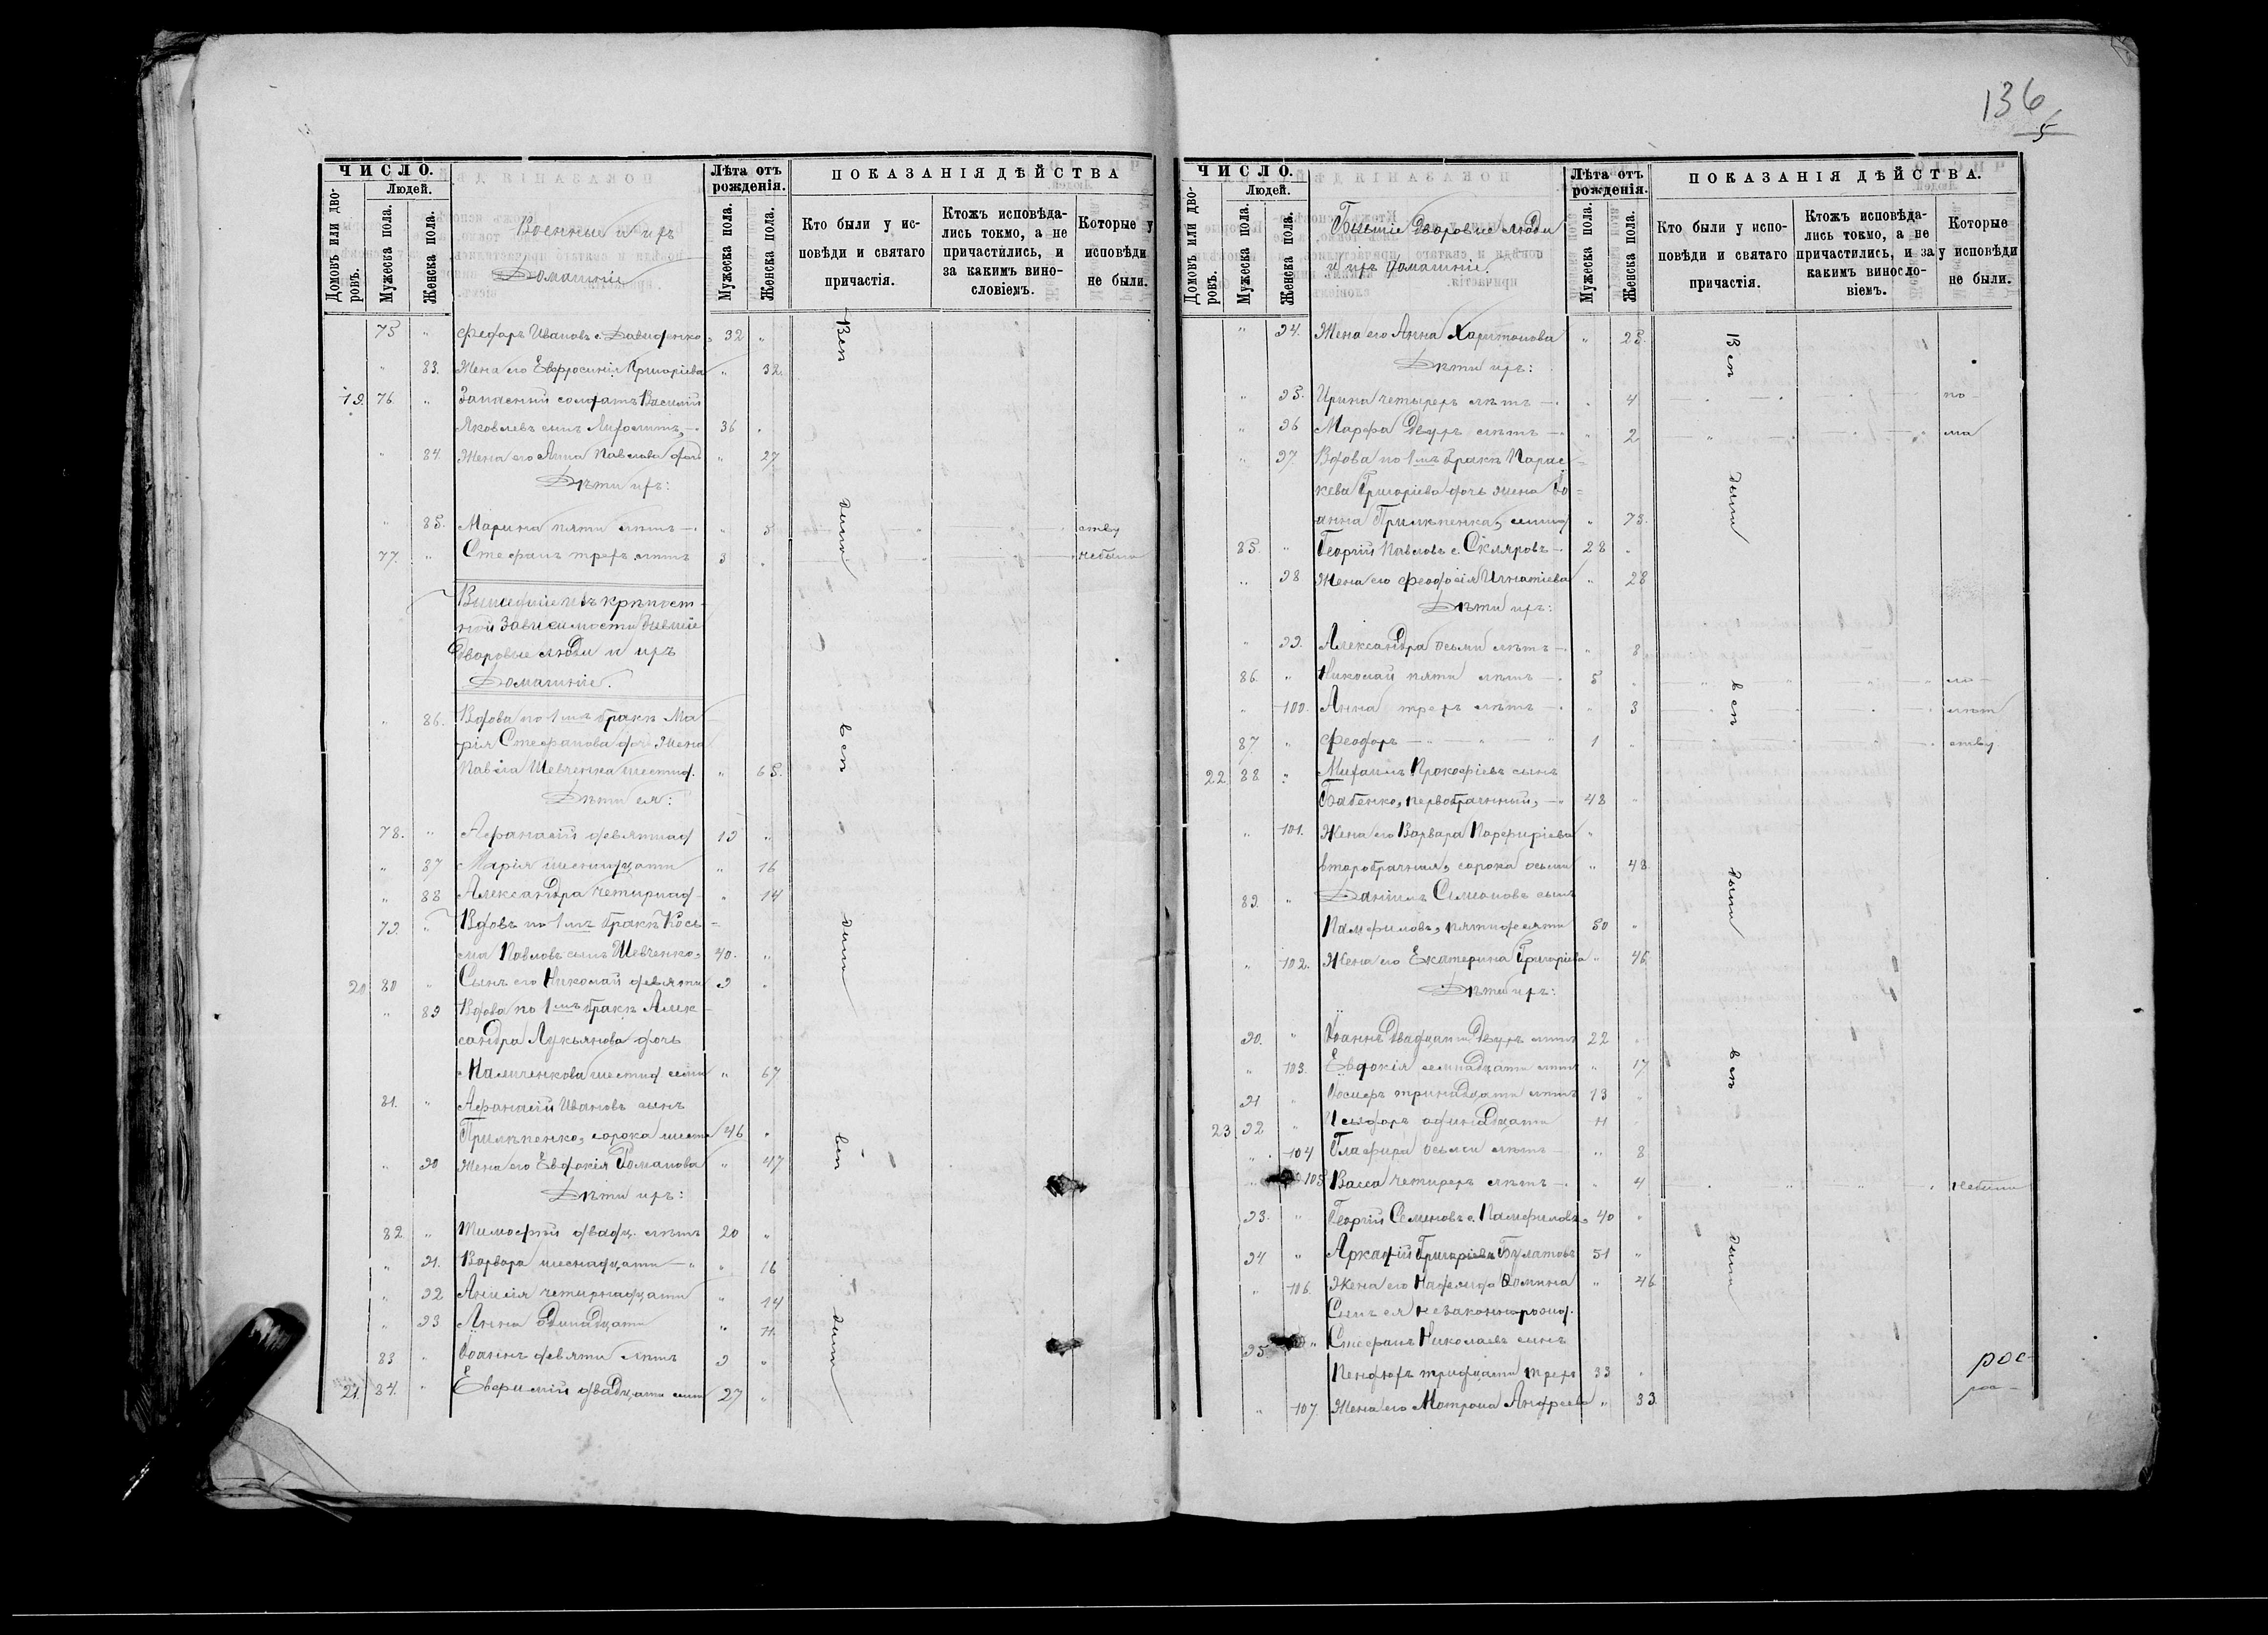 136
5
ЧИСЛО.
Людей.
Домовъ или дворовъ.
Мужеска пола.
Женска пола.
Военные и ихъ
Домашніе
Лѣта отъ рожденія.
Мужеска пола.
Женска пола.
ПОКАЗАНІЯ ДѢЙСТВА
Кто были у исповѣди и святаго причастія.
Ктожъ исповѣдались токмо, а не причастились, и за какимъ винословіемъ.
Которые у исповѣди не были.
75 " Федоръ Ивановъ с. Давиденко 32 "
" 83. Жена его Евфросинія Григоріева " 32.
19. 76 " Запасный солдатъ Василій
Яковлевъ сынъ 36 "
" 84. Жена его Анна Павлова доч " 27
Дѣти ихъ:
" 85. Марина пяти лѣтъ " 5 ству
77. " Стефанъ трехъ лѣтъ 3 " небыло
Вышедшіе изъ крѣпост-
ной зависимости бывшіе
дворовые люди и ихъ
Домашніе.
" 86. Вдова по 1мъ бракѣ Ма-
рія Стефанова доч. жена
Павла Шевченка шестид. " 65.
Дѣти ея:
78. " Афанасій девятнад 19 "
" 87 Марія шестнадцати " 16
" 88 Александра четырнад " 14
79. " Вдовъ по 1мъ бракѣ Кось-
ма Павловъ сынъ Шевченко 40. "
20 80 " Сынъ его Николай девяти 9 "
" 89 Вдова по 1мъ бракѣ Алек-
сандра Лукьянова дочь
шестид семи " 67
81. " Афанасій Ивановъ сынъ
Прилѣпенко, сорока шести 46 "
" 90 Жена его Евдокія Романова " 47
Дѣти ихъ:
82 " Тимофей двадц. лѣтъ 20 "
" 91. Варвара шеснадцати " 16
" 92 Анисія четырнадцати " 14
" 93 Анна одинадцати " 11.
83 " Іоаннъ девяти лѣтъ 9 "
21. 84. " Евфимій двадцати семи 27 "
Всѣ
были
всѣ
были
всѣ
были
ЧИСЛО.
Людей.
Домовъ или дворовъ.
Мужеска пола.
Женска пола.
Бывшіе Дворовые люди
и ихъ домашніе.
Лѣта отъ рожденія.
Мужеска пола.
Женска пола.
ПОКАЗАНІЯ ДѢЙСТВА.
Кто были у исповѣди и святаго причастія.
Ктожъ исповѣдались токмо, а не причастились, и за какимъ винословіемъ.
Которые у исповѣди не были.
" 94. Жена его Анна Харитонова " 25.
Дѣти ихъ:
" 95. Ирина четырехъ лѣтъ " 4 по
" 96 Марфа двухъ лѣтъ " 2 ма
" 97 Вдова по 1мъ бракѣ Парас-
кева Григоріева дочь жена Іо-
анна Прилѣпенка, семид " 75.
85. " Георгій Павловъ с. Скляровъ 28 "
" 98 Жена его Феодосія Игнатіева " 28
Дѣти ихъ:
" 99. Александра осьми лѣтъ " 8
86. " Николай пяти лѣтъ 5 "
" 100. Анна трехъ лѣтъ " 3 лѣт
87. " Феодоръ 1 " ству
22 88 " Михаилъ Прокофіевъ сынъ
Бабенко, первобрачный, 48 "
" 101. Жена его Варвара Порфиріева "
второбрачная, сорока осьми " 48
89. " Даніилъ Симоновъ сынъ
Памфиловъ, пятидесяти 50 "
" 102. Жена его Екатерина Григоріева " 46
Дѣти ихъ:
90. " Іоаннъ двадцати двухъ лѣтъ 22 "
" 103. Евдокія семнадцати лѣтъ " 17
91 " Іосифъ тринадцати лѣтъ 13 "
23 92 " Исидоръ одинадцати 11
" 104 Глафира осьми лѣтъ " 8
" 105 Васса четырехъ лѣтъ " 4 небыли
93. " Георгій Семеновъ с. Памфиловъ 40 "
94 " Аркадій Григоріевъ Булатовъ 51 "
" 106. Жена его Надежда Фомина " 46
Сынъ ея незаконнорожд.
95 " Стефанъ Николаевъ сынъ
тридцати трехъ 33 "
" 107. Жена его Матрона Андреева " 33
Всѣ
были
всѣ
были
всѣ
были
рос-
рос-